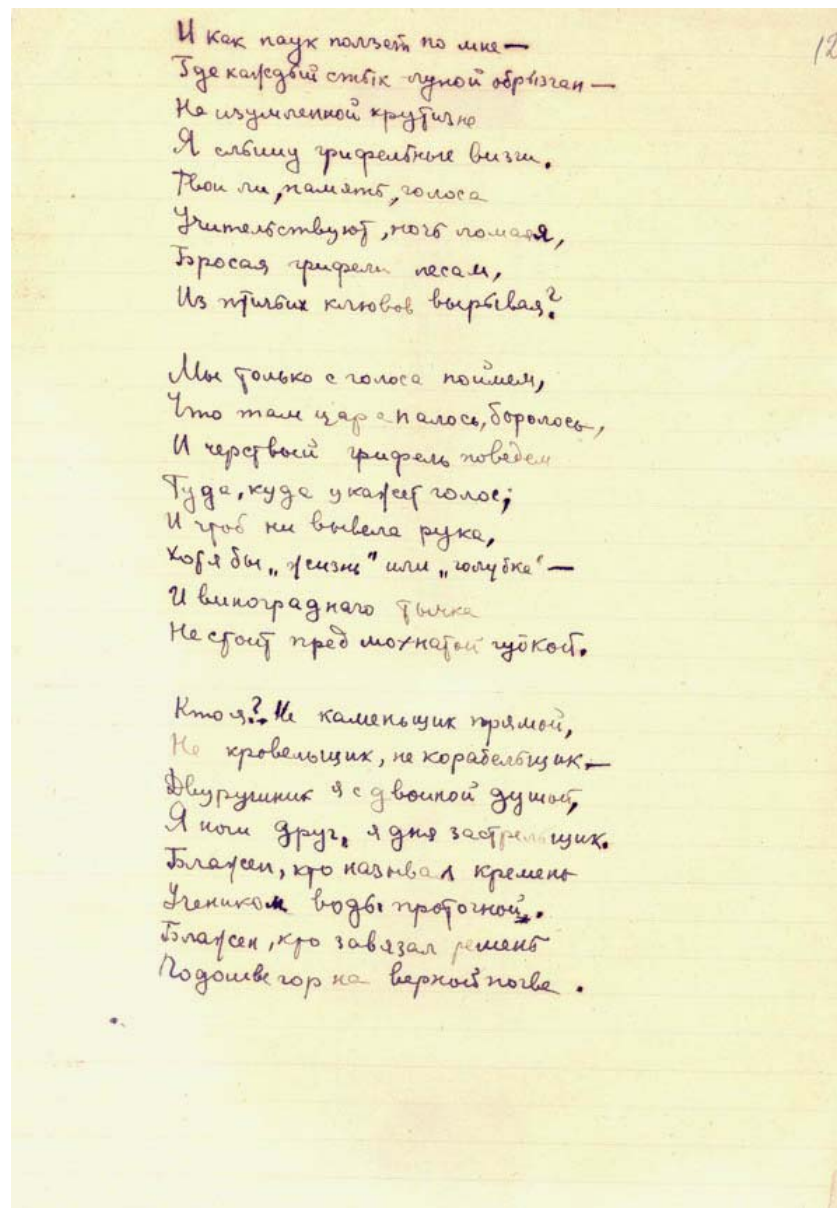 12
И как паук ползет по мне —
Где каждый стык луной обрызган —
На изумленной крутизне
Я слышу грифельные визги.
Твои ли, память, голоса
Учительствуют, ночь ломая,
Бросая грифели лесам,
Из птичьих клювов вырывая?
Мы только с голоса поймем,
Что там царапалось, боролось,
И черствый грифель поведем
Туда, куда укажет голос;
И чтоб ни вывела рука,
Хотя бы „жизнь" или „голубка" —
И виноградного тычка
Не стоит пред мохнатой губкой.
Кто я? Не каменьщик прямой,
Не кровельщик, не корабельщик. —
Двурушник я с двойной душой,
Я ночи друг, я дня застрельщик.
Блажен, кто называл кремень
Учеником воды проточной.
Блажен, кто завязал ремень
Подошве гор на верной почве.